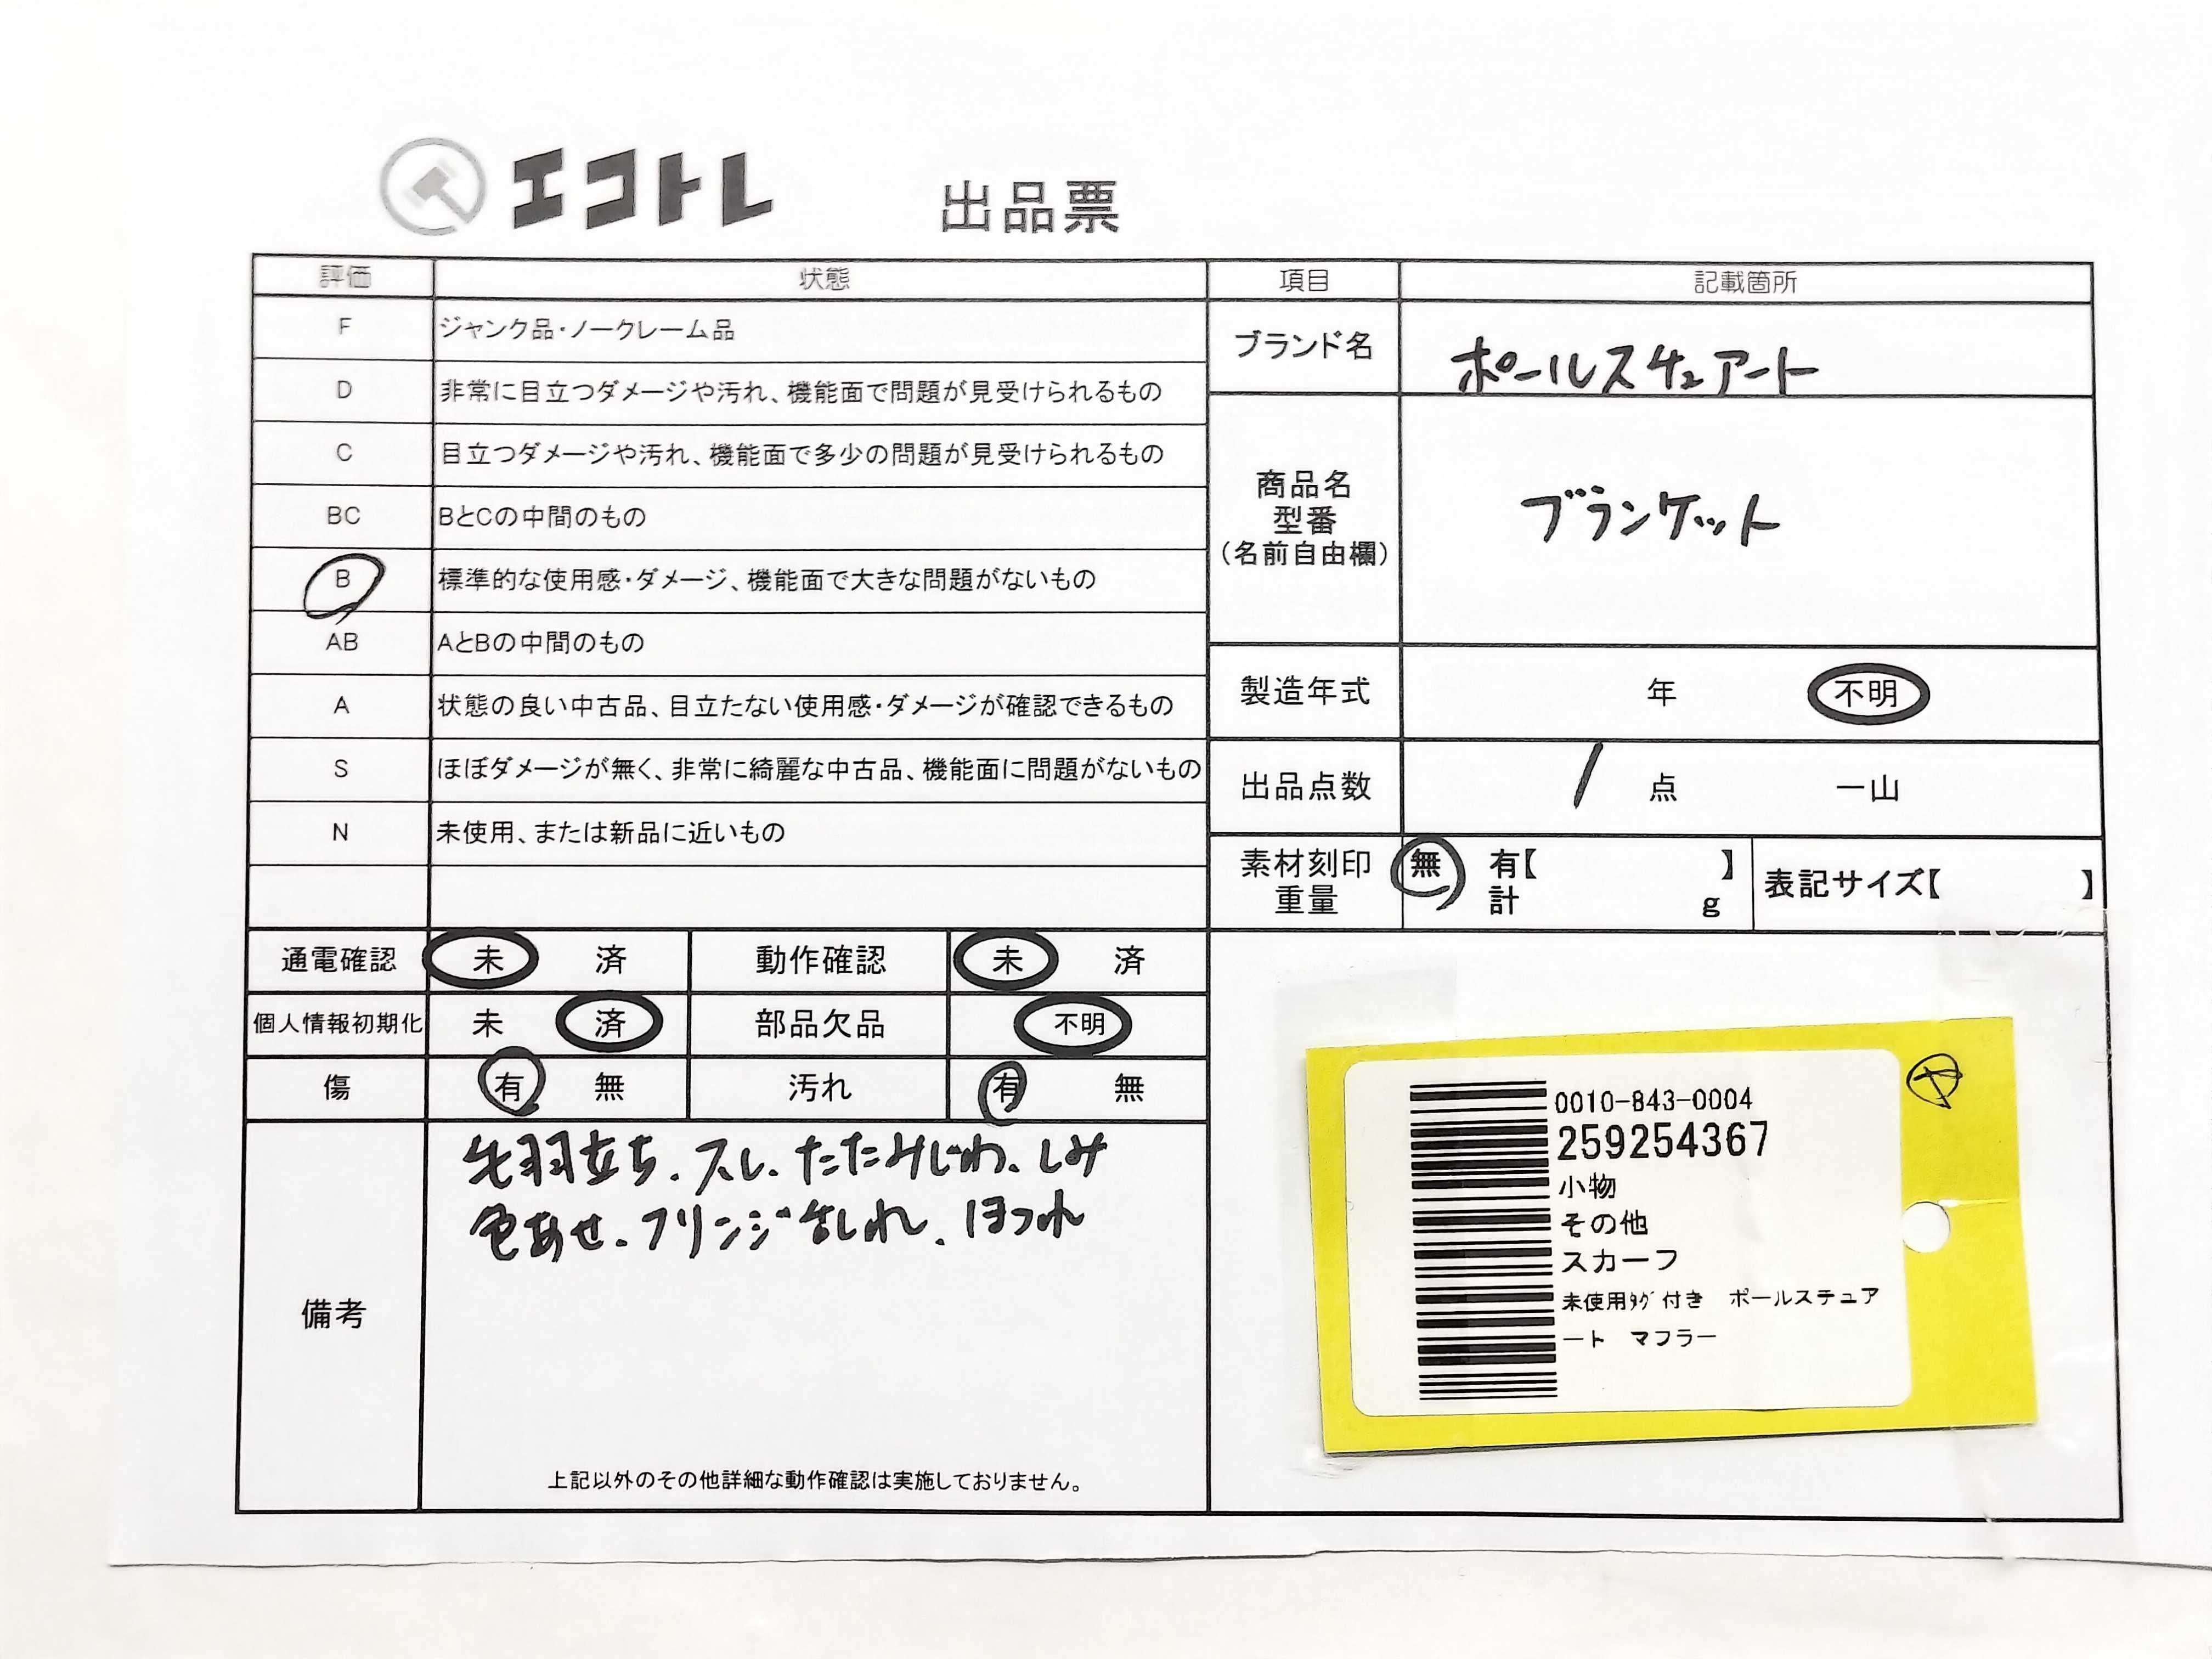 エコトレ 出品票
評価 状態 項目 記載箇所
F ジャンク品・ノークレーム品
D 非常に目立つダメージや汚れ、機能面で問題が見受けられるもの
C 目立つダメージや汚れ、機能面で多少の問題が見受けられるもの
BC BとCの中間のもの
B 標準的な使用感・ダメージ、機能面で大きな問題がないもの
AB AとBの中間のもの
A 状態の良い中古品、目立たない使用感・ダメージが確認できるもの
S ほぼダメージが無く、非常に綺麗な中古品、機能面に問題がないもの
N 未使用、または新品に近いもの
ブランド名 ポールスチュアート
商品名
型番
(名前自由欄)
ブランケット
製造年式 年 不明
出品点数 1 点 一山
素材刻印 無 有【 】
重量 計 g
表記サイズ【 】
通電確認 未 済 動作確認 未 済
個人情報初期化 未 済 部品欠品 不明
傷 有 無 汚れ 有 無
備考
毛羽立ち、スレ、たたみじわ、しみ
色あせ、フリンジ乱れ、ほつれ
上記以外のその他詳細な動作確認は実施しておりません。
0010-843-0004
259254367
小物
その他
スカーフ
未使用ﾀｸﾞ付き ポールステュア
ート マフラー